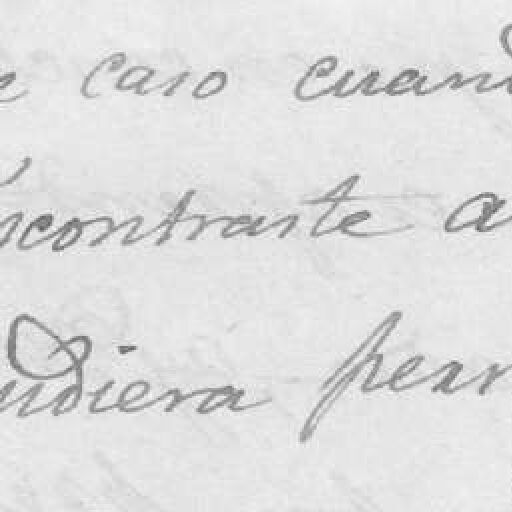 e caso cuand
encontraste a
udiera perr